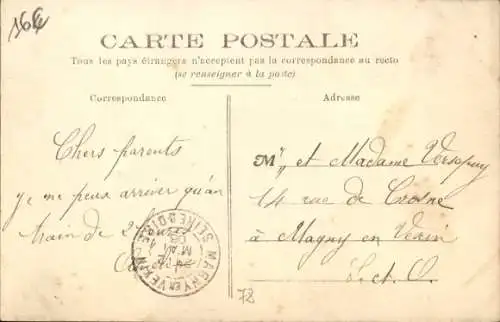 164
CARTE POSTALE
Tous les pays étrangers n'acceptent pas la correspondance au recto
(se renseigner à la poste)
Correspondance
Adresse
Chers parents
je ne peux arriver qu'au
train de 2
Mr et Madame Versepuy
14 rue de Crosne
à Magny en Vexin
S. et O.
MAGNY EN VEXIN
SEINE & OISE
78